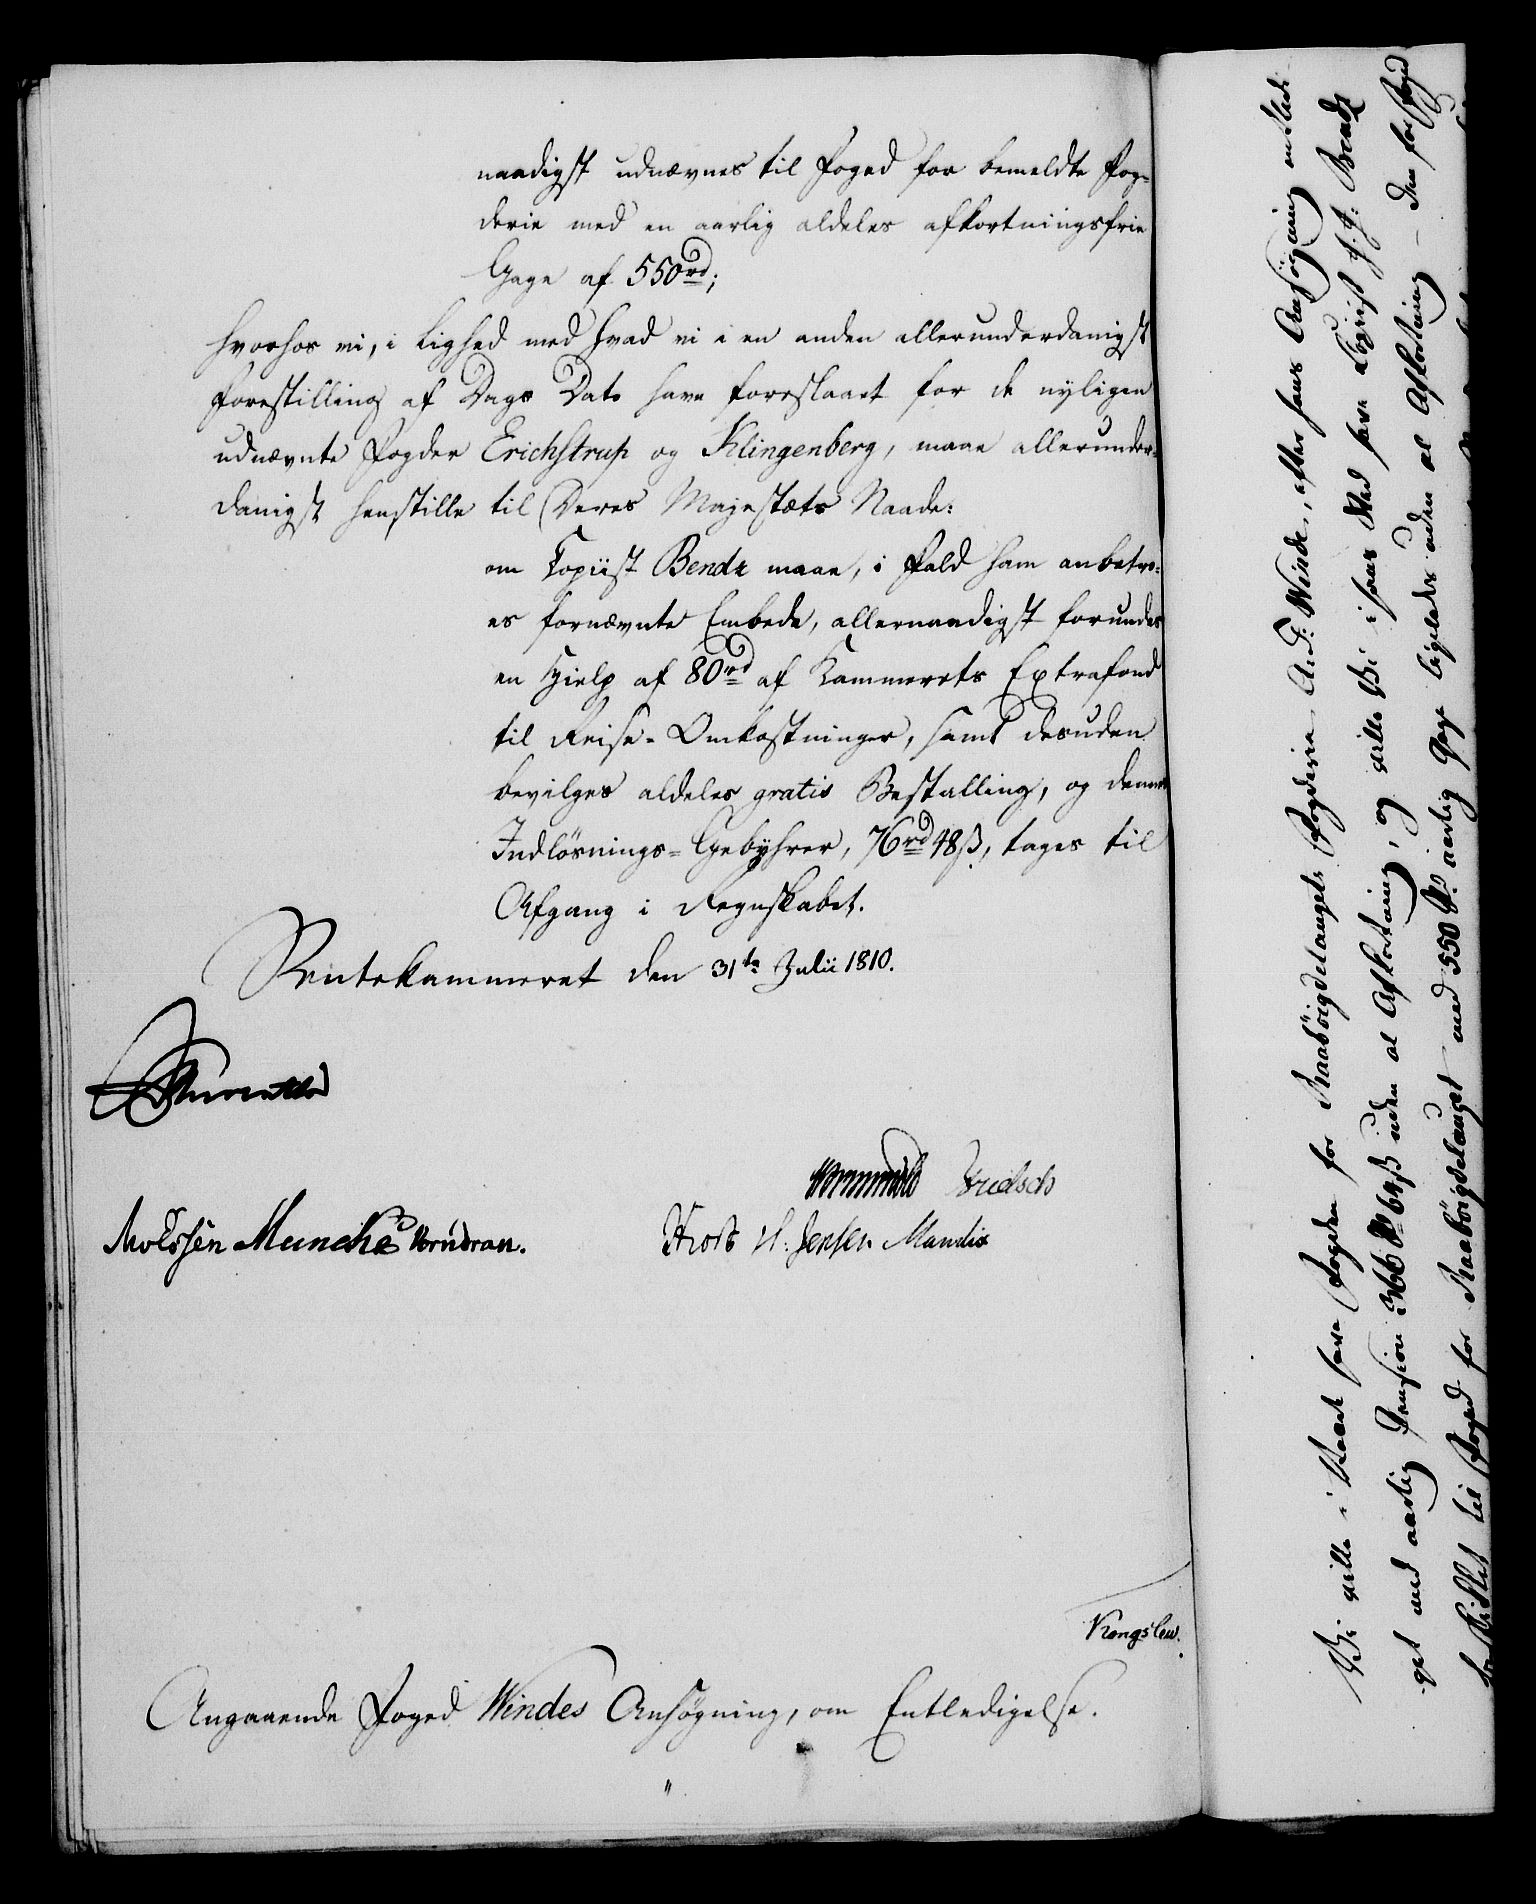 naadigst udnævnes til Foged for bemeldte Fog-
derie med en aarlig aldeles afkortningsfrie
Gage af 550 rd;
hvorhos vi, i Lighed med hvad vi i en anden allerunderdanigst
Forestilling af Dags Dato have foreslaaet for de nyligen
udnævnte Fogder Erichstrup og Klingenberg, maae allerunder-
danigst henstille til Deres Majestæts Naade:
om Copiist Bendz maae, i Fald ham anbetro-
es fornævnte Embede, allernaadigst forundes
en Hielp af 80 rd af Kammerets Extrafond
til Reise-Omkostninger, samt desuden
bevilges aldeles gratis Bestalling, og dennes
Indløsnings-Gebyhrer, 76 rd 48 ß, tages til
Afgang i Regnskabet.
Rentekammeret den 31te Julii 1810.
Wormskiold
Knoff H: Jensen Mandix
Kongslew.
Angaaende Foged Windes Ansøgning, om Entledigelse.
Vi ville i Naade have Fogden for Raabøigdelaugets Fogderie A: F: Winde, efter hans Ansøgning entledi-
get med aarlig Pension 366 rd 64 ß uden al Afkortning, og ville Vi i hans Sted have Copiist J. J: Bendz
beskikket til Foged for Raabøigdelauget med 550 rd aarlig Gage ligeledes uden al Afkortning – Den for Foged